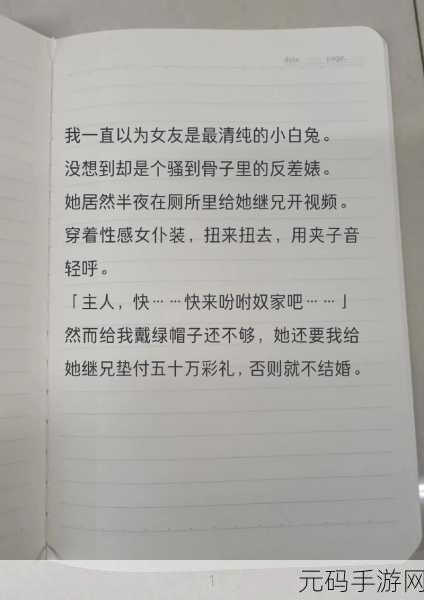 date page
我一直以为女友是最清纯的小白兔。
没想到却是个骚到骨子里的反差婊。
她居然半夜在厕所里给她继兄开视频。
穿着性感女仆装，扭来扭去，用夹子音
轻呼。
「主人，快……快来吩咐奴家吧……」
然而给我戴绿帽子还不够，她还要我给
她继兄垫付五十万彩礼，否则就不结婚。
1
元码手游网